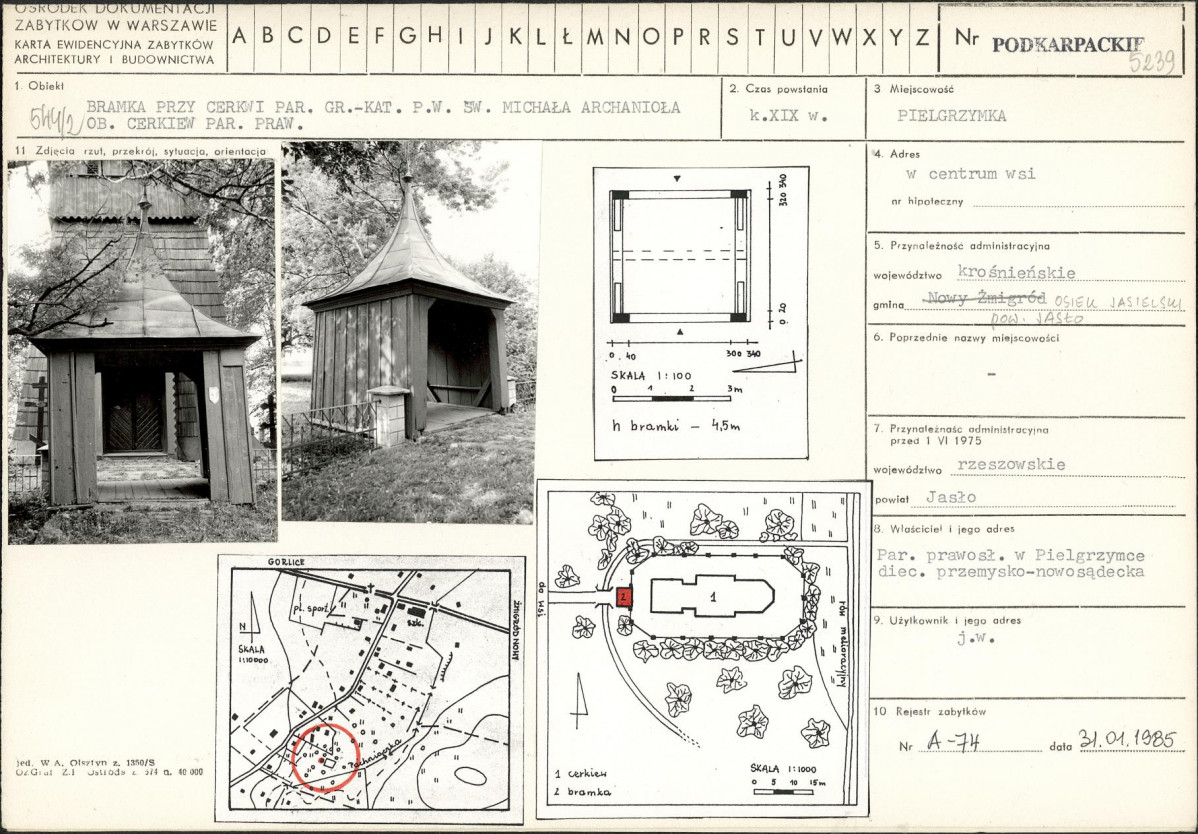 OŚRODEK DOKUMENTACJI
ZABYTKÓW W WARSZAWIE
KARTA EWIDENCYJNA ZABYTKÓW
ARCHITEKTURY I BUDOWNICTWA
A B C D E F G H I J K L Ł M N O P R S T U V W X Y Z
Nr PODKARPACKIE
5239
1. Obiekt
544/2
BRAMKA PRZY CERKWI PAR. GR.-KAT. P.W. ŚW. MICHAŁA ARCHANIOŁA
OB. CERKIEW PAR. PRAW.
2. Czas powstania
k.XIX w.
3 Miejscowość
PIELGRZYMKA
11 Zdjęcia rzut, przekrój, sytuacja, orientacja
4. Adres
w centrum wsi
nr hipoteczny
5. Przynależność administracyjna
województwo krośnieńskie
gmina Nowy Żmigród OSIEK JASIELSKI
pow. JASŁO
6. Poprzednie nazwy miejscowości
-
7. Przynależność administracyjna
przed 1 VI 1975
województwo rzeszowskie
powiat Jasło
8. Właściciel i jego adres
Par. prawosł. w Pielgrzymce
diec. przemysko-nowosądecka
9. Użytkownik i jego adres
j.w.
10 Rejestr zabytków
Nr A-74 data 31.01.1985
320 340
0 20
0 40 300 340
SKALA 1:100
0 1 2 3m
h bramki – 4,5m
GORLICE
pl. sport.
szk.
ŻMIGRÓD NOWY
N
SKALA
1:10000
do wsi
2
1
rów melioracyjny
1 cerkiew
2 bramka
SKALA 1:1000
0 5 10 15m
jed. W.A. Olsztyn z. 1350/S